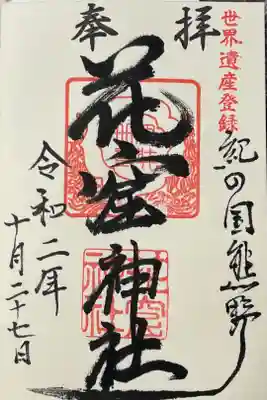 世界遺産登録
紀の国熊野
奉拝
花の窟神社
令和二年
十月二十七日